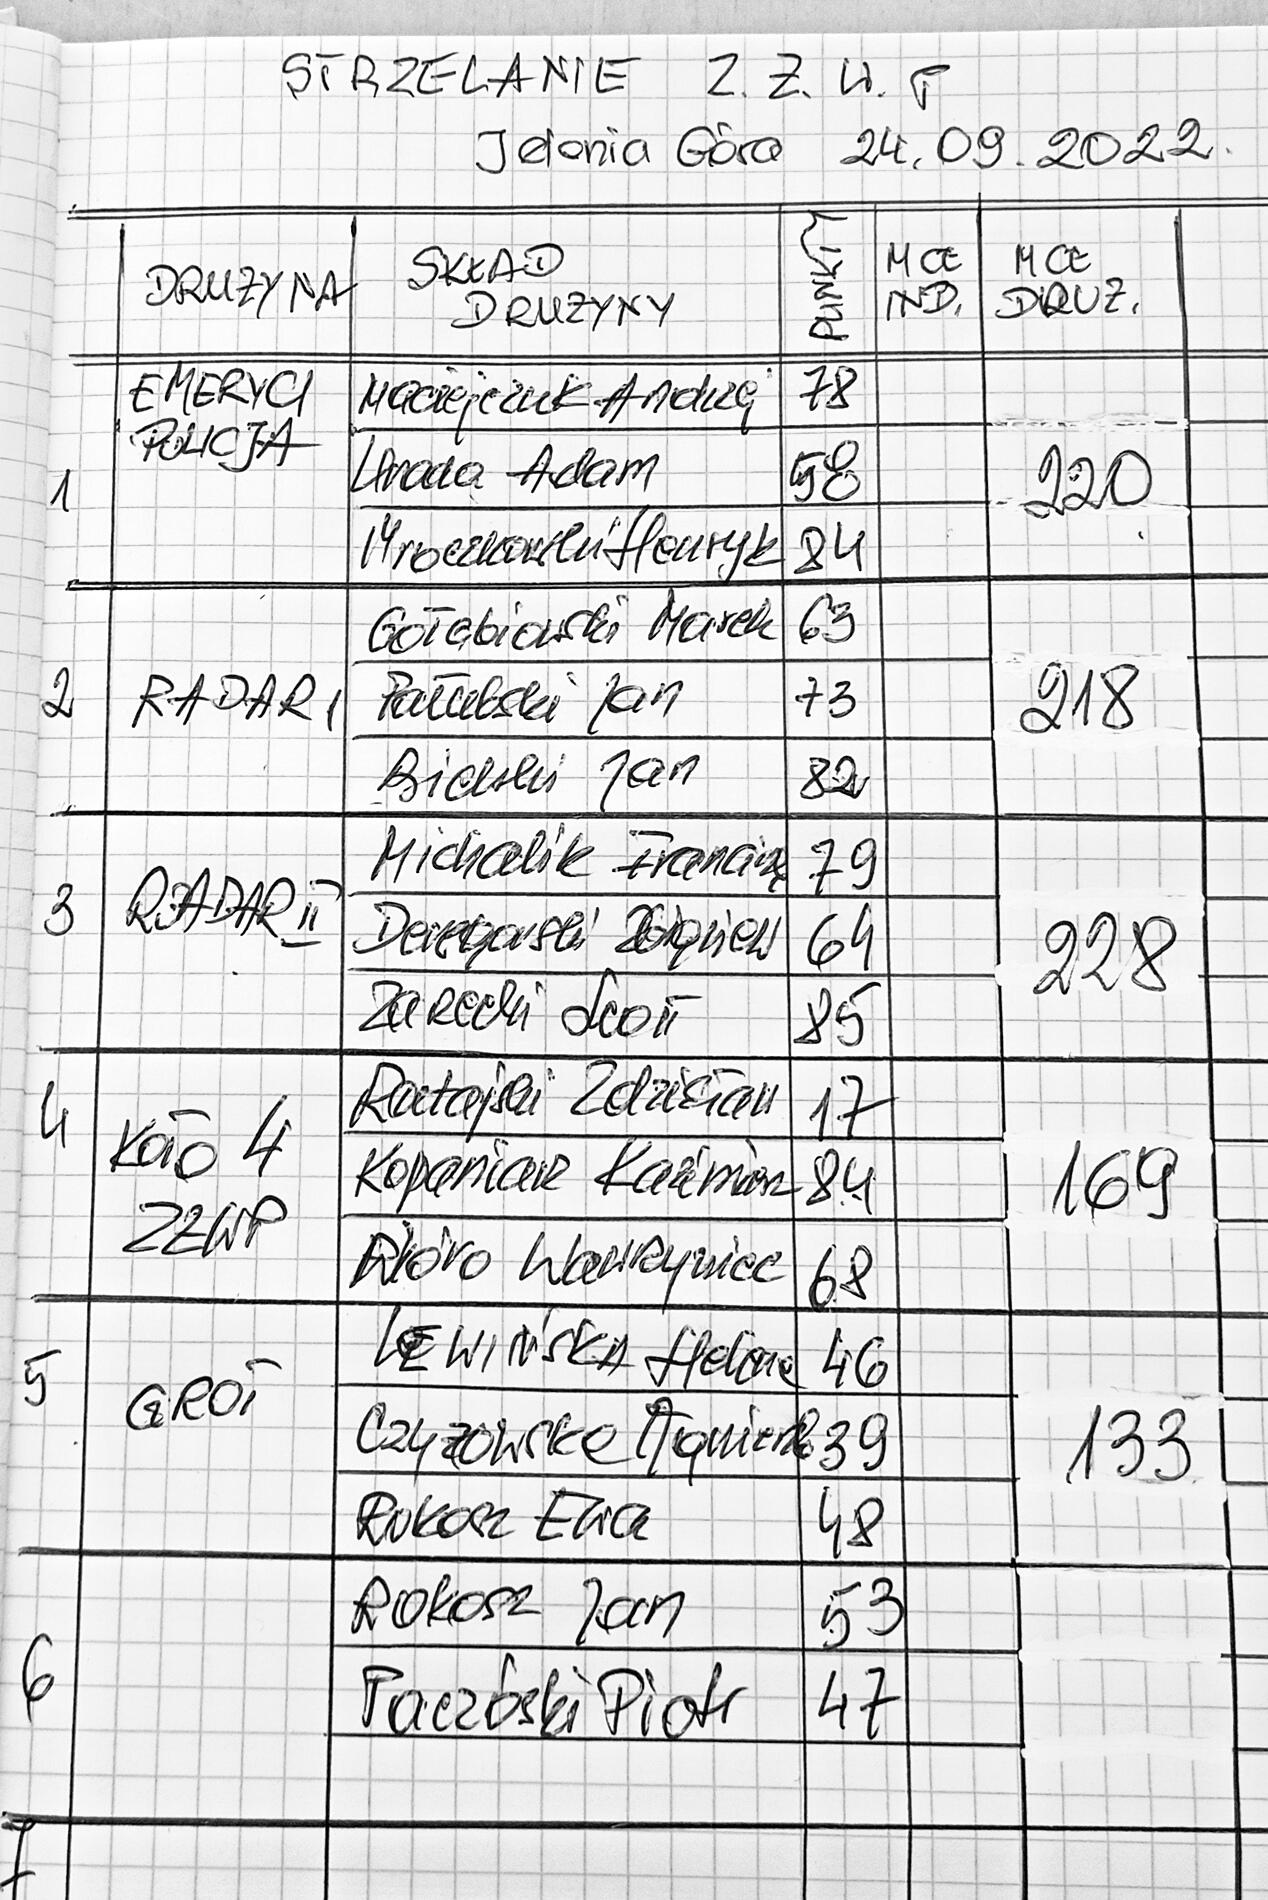 STRZELANIE Z.Ż.W.P
Jelenia Góra 24.09.2022.
DRUŻYNA SKŁAD DRUŻYNY PUNKTY MCE IND. MCE DRUŻ.
1 EMERYCI POLICJA Maciejczuk Andrzej 78 220
Adam 58
Mroczkowski Henryk 84
2 RADAR I Gołębiowski Marek 63 218
Pałubski Jan 73
Bielski Jan 82
3 RADAR II Michalik Francisz 79 228
Zbigniew 64
Zarecki Leon 85
4 Koło 4 ZŻWP Ratajski Zdzisław 17 169
Kopaniarz Kazimierz 84
Pióro Wawrzyniec 68
5 GROT LEWIŃSKA Helena 46 133
Czyżowska Agnieszk 39
Rokosz Ewa 48
6 Rokosz Jan 53
Paczóski Piotr 47
7